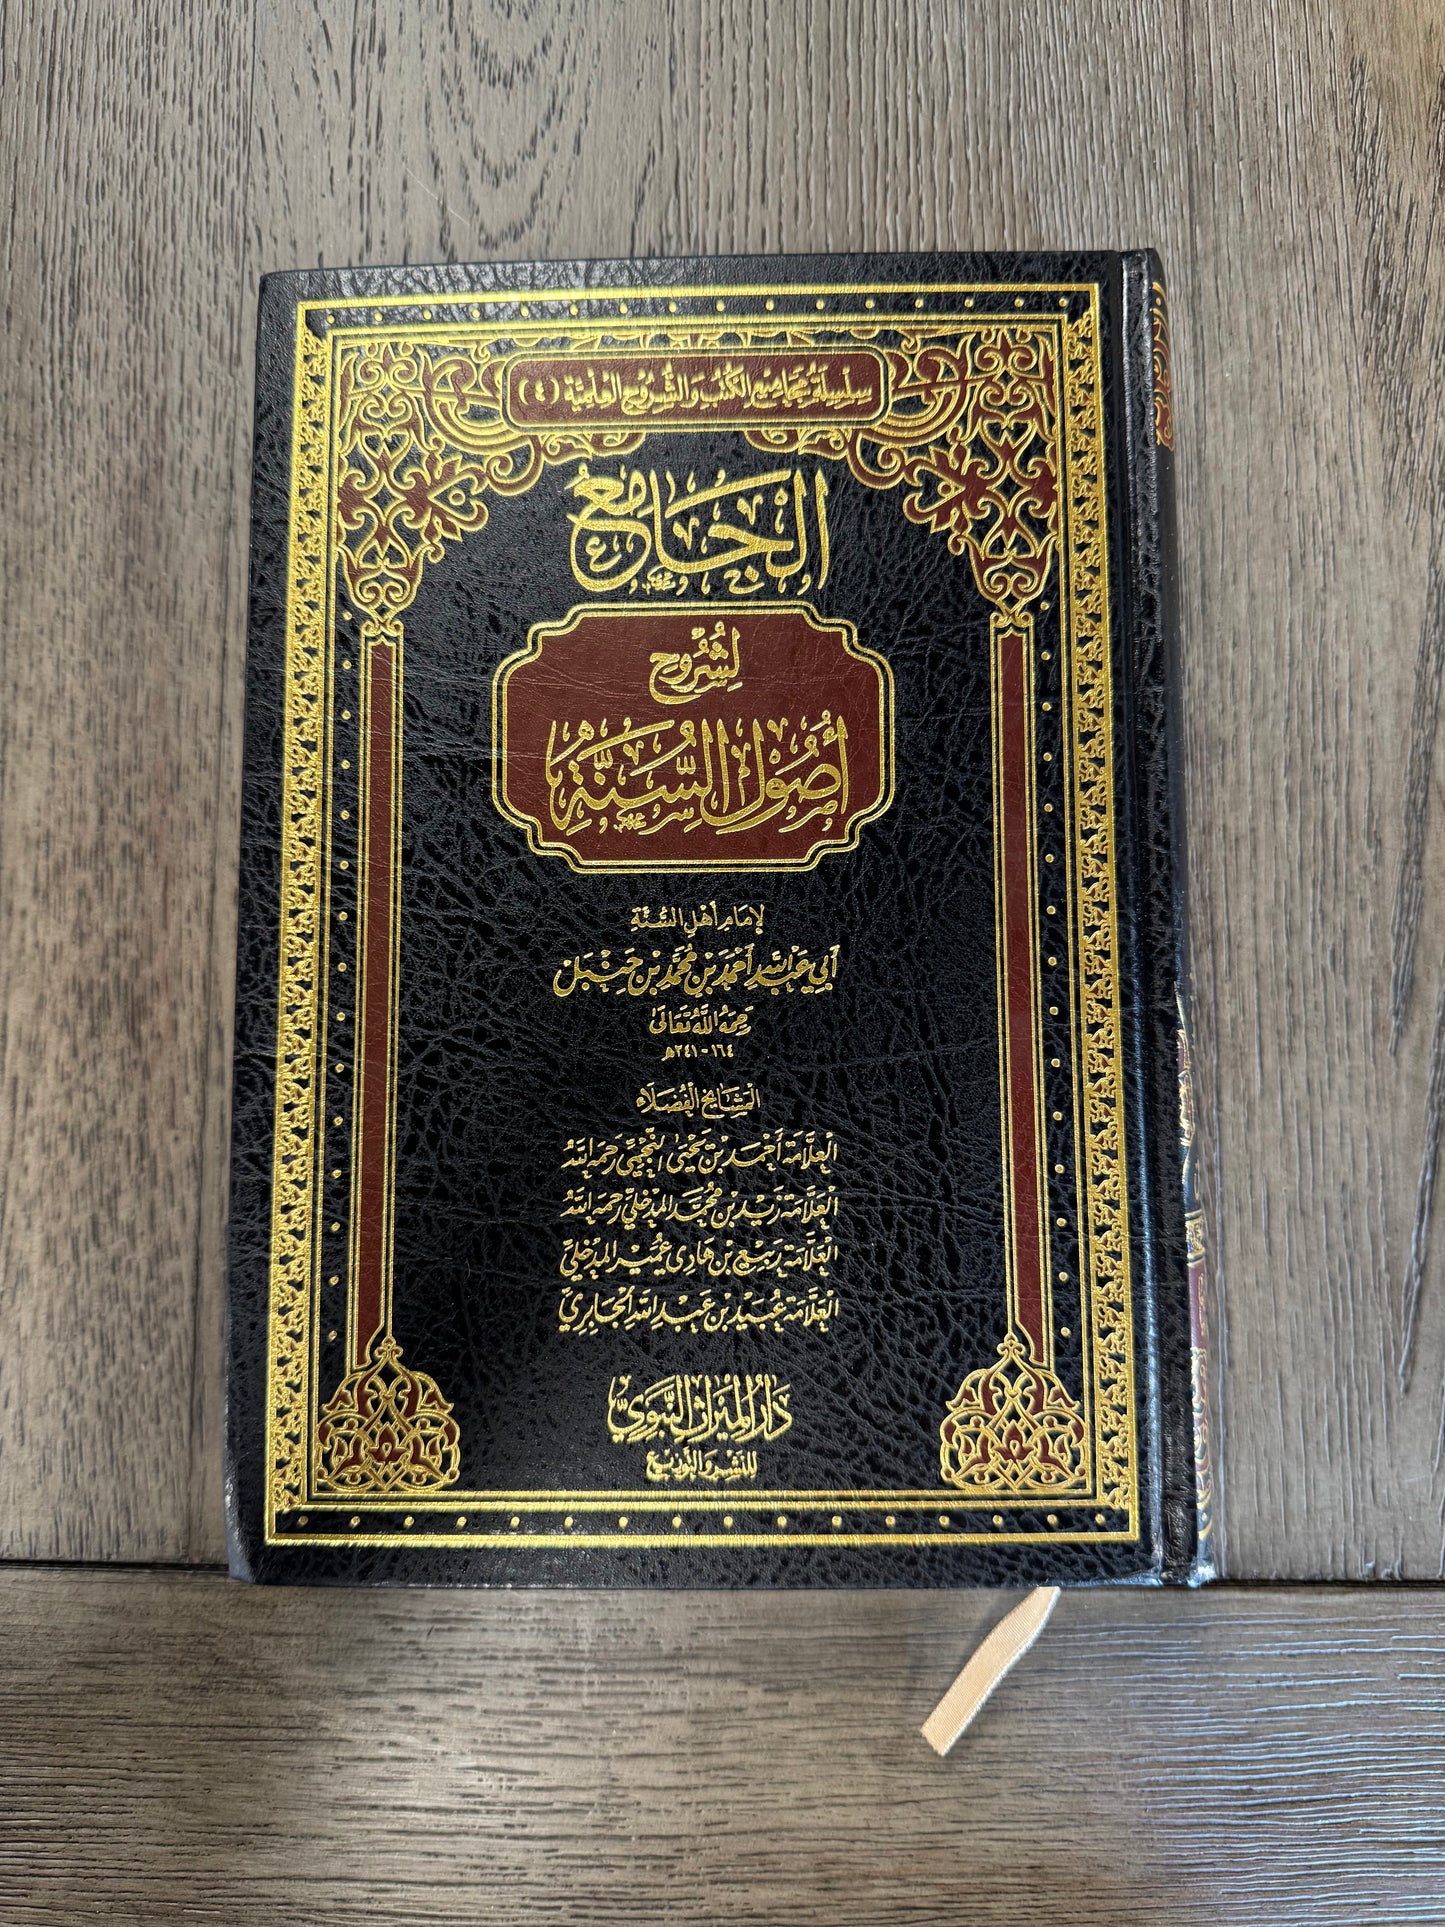 سِلْسِلَةُ مَجَامِيعِ الْكُتُبِ وَالشُّرُوحِ الْعِلْمِيَّةِ (٤)
الجَامِعُ
لِشُرُوحِ
أُصُولِ السُّنَّةِ
لِإِمَامِ أَهْلِ السُّنَّةِ
أَبِي عَبْدِ اللَّهِ أَحْمَدَ بْنِ مُحَمَّدِ بْنِ حَنْبَلٍ
رَحِمَهُ اللَّهُ تَعَالَى
١٦٤ - ٢٤١هـ
المَشَايِخ الْفُضَلَاء
الْعَلَّامَة أَحْمَد بْن يَحْيَى النَّجْمِيّ رَحِمَهُ اللَّهُ
الْعَلَّامَة زَيْد بْن مُحَمَّد المَدْخَلِيّ رَحِمَهُ اللَّهُ
الْعَلَّامَة رَبِيع بْن هَادِي عُمَيْر المَدْخَلِيّ
الْعَلَّامَة عُبَيْد بْن عَبْدِ اللَّهِ الْجَابِرِيّ
دَارُ الْمِيرَاثِ النَّبَوِيِّ
لِلنَّشْرِ وَالتَّوْزِيعِ